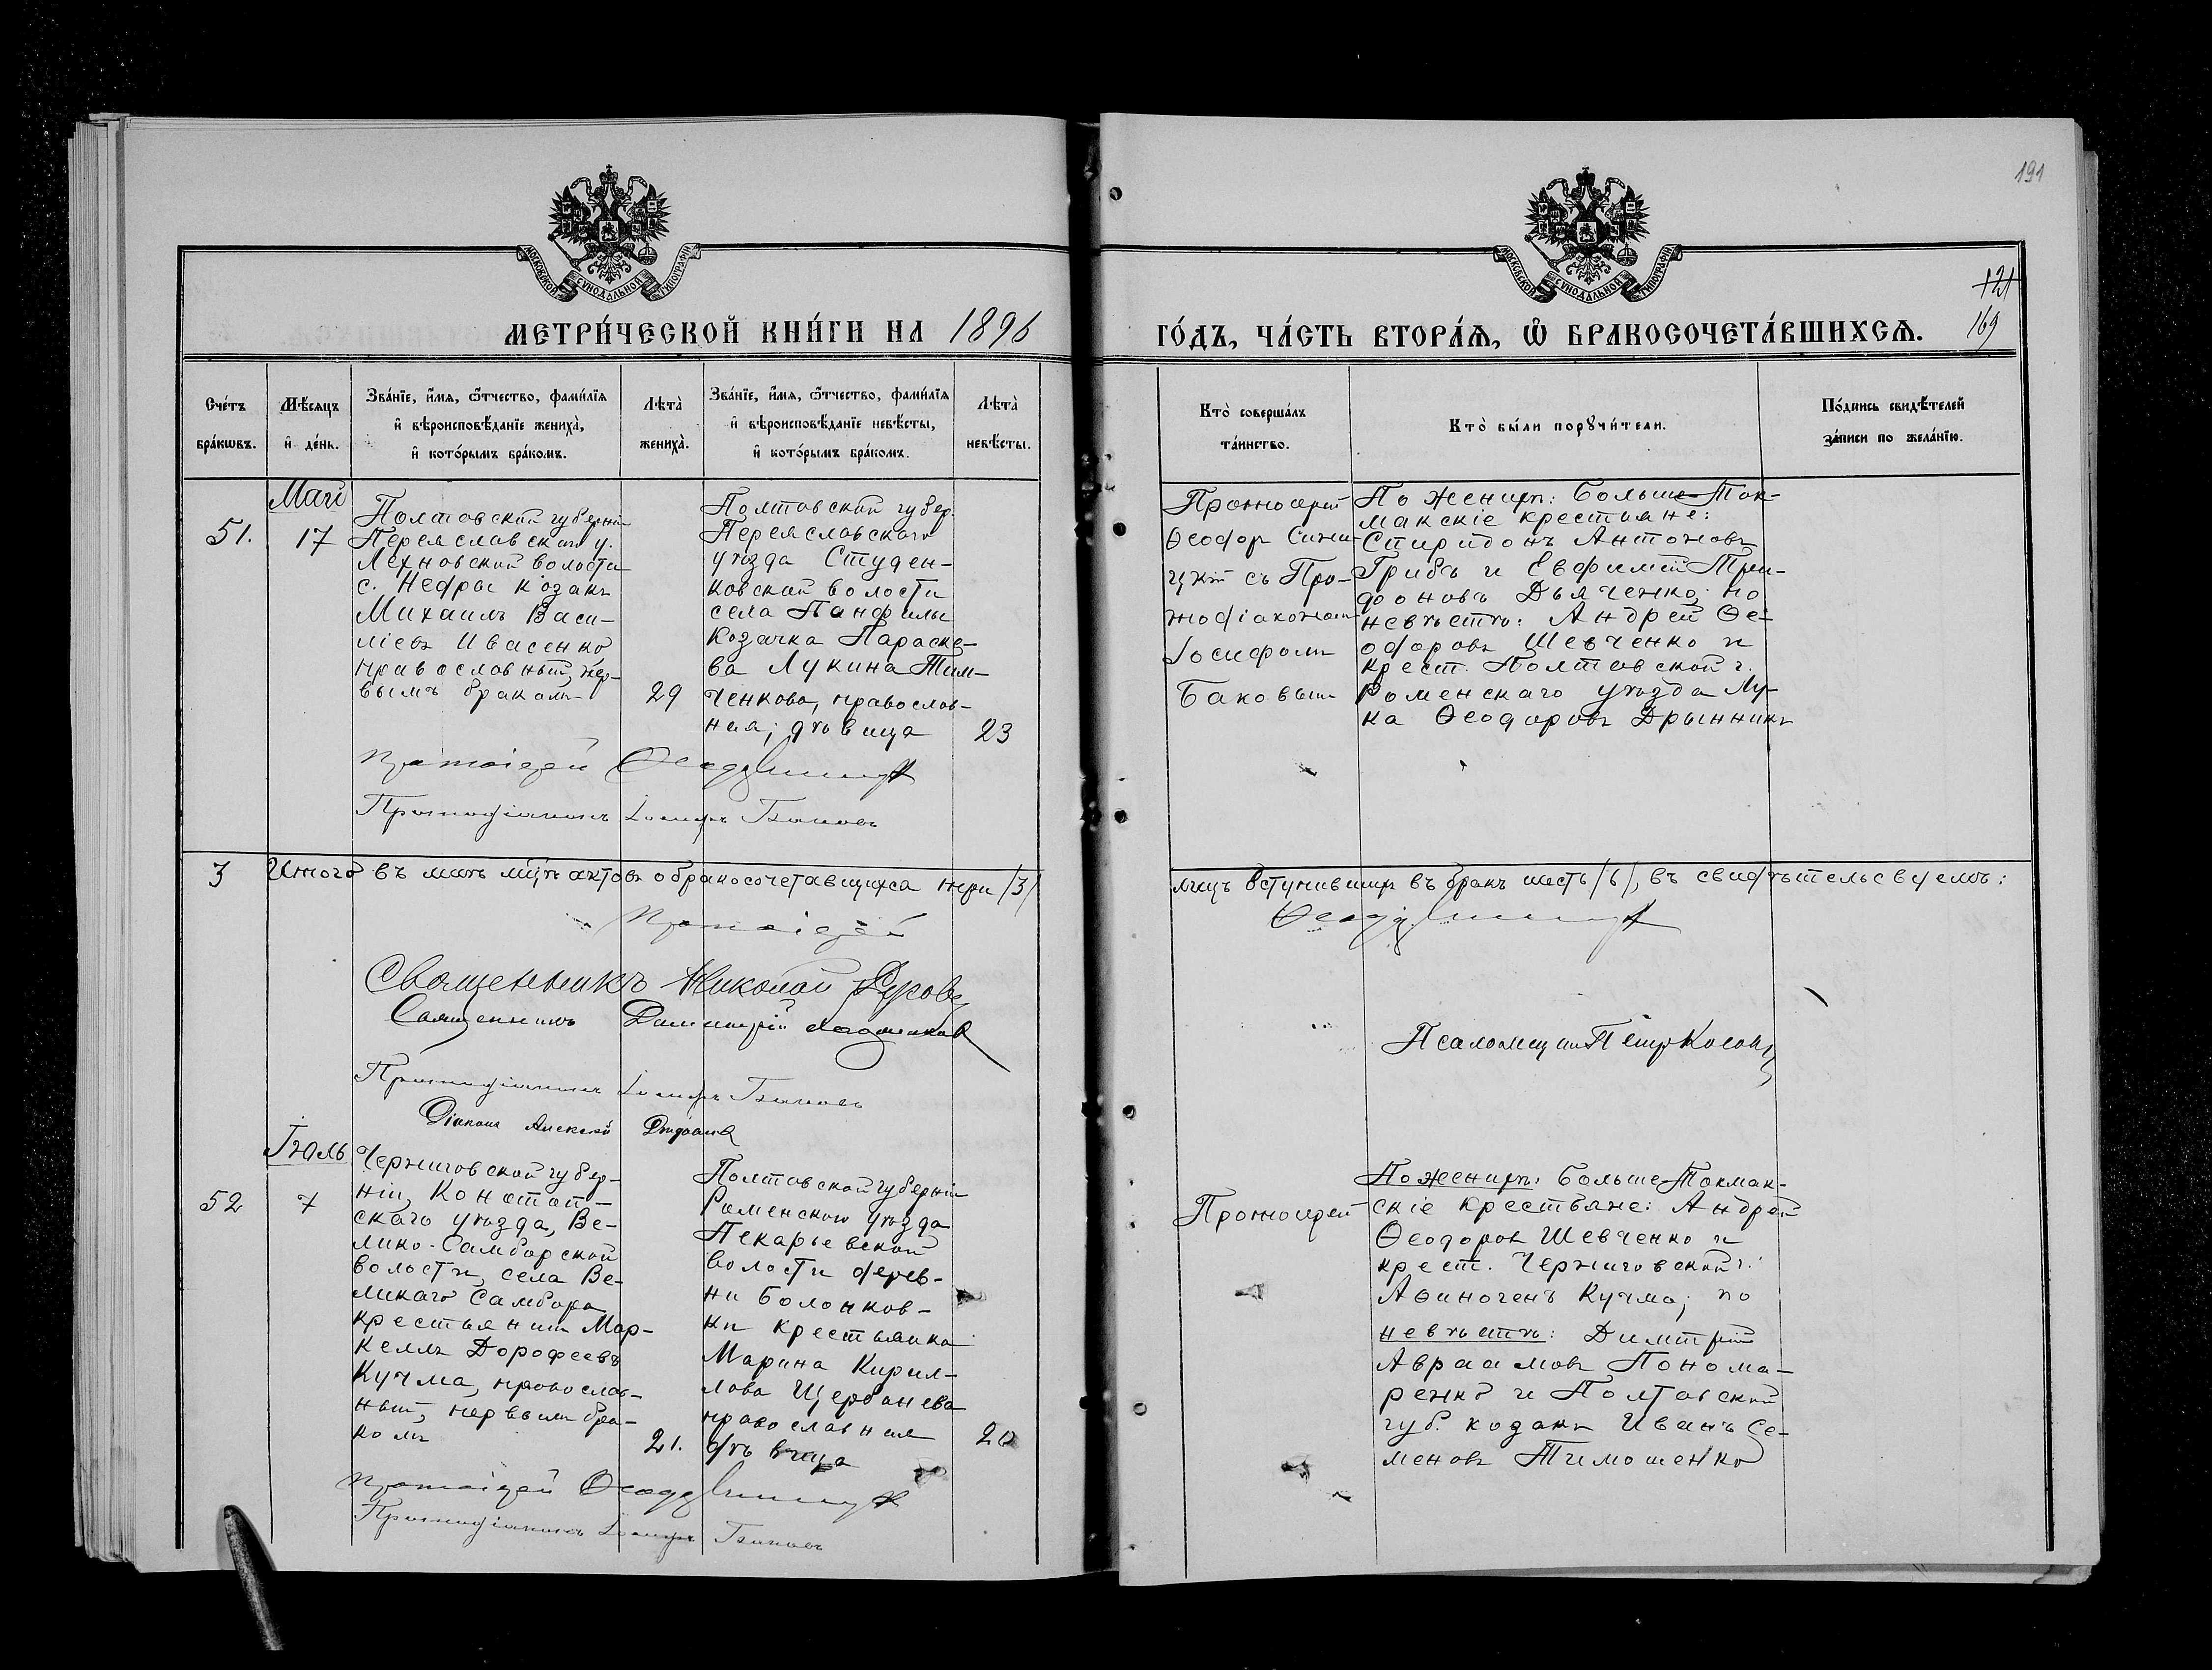 191
МОСКОВСКОЙ СѴНОДАЛЬНОЙ ТИПОГРАФІИ
МОСКОВСКОЙ СѴНОДАЛЬНОЙ ТИПОГРАФІИ
МЕТРИ́ЧЕСКОЙ КНИ́ГИ НА 1896
ГО́ДЪ, ЧА́СТЬ ВТОРА́Я, Ѡ БРАКОСОЧЕТА́ВШИХСЯ.
121
169
Сче́тъ
бра́кѡвъ.
Мѣ́сяцъ
и де́нь.
Зва́нїе, и́мя, ѻ́тчество, фами́лїя
и вѣроисповѣ́данїе жениха̀,
и кото́рымъ бра́комъ.
Лѣта̀
жениха̀.
Зва́нїе, и́мя, ѻ́тчество, фами́лїя
и вѣроисповѣ́данїе невѣ́сты,
и кото́рымъ бра́комъ.
Лѣта̀
невѣ́сты.
Кто̀ соверша́лъ
та́инство.
Кто̀ бы́ли порꙋчи́тели.
По́дпись свидѣ́телей
за́писи по жела́нїю.
51.
Май
17
Полтавской губерніи
Переяславскаго у.
Лехновской волости
с. Недры козакъ
Михаилъ Васи-
ліевъ Ивасенко
православный, пер-
вымъ бракомъ
29
Полтавской губер.
Переяславскаго
уѣзда Студен-
ковской волости
села Панфилы
козачка Параске-
ва Лукина Тим-
ченкова, православ-
ная; дѣвица
23
Протоіерей
Ѳеодоръ Сини-
цкій съ Про-
тодіакономъ
Іосифомъ
Баковымъ
По женихѣ: Больше-Ток-
макскіе крестьяне:
Спиридонъ Антоновъ
Грибъ и Евфимій Три-
фоновъ Дьяченко; по
невѣстѣ: Андрей Ѳе-
одоровъ Шевченко и
крест. Полтавской г.
Роменскаго уѣзда Лу-
ка Ѳеодоровъ Дрынникъ
Протоіерей Ѳеодоръ
Протодіаконъ Іосифъ Баковъ
3
Итого въ маѣ мцѣ актовъ о бракосочетавшихся три /3/
лицъ вступившихъ въ бракъ шесть /6/, въ свидѣтельсвуемъ:
Протоіерей
Ѳеодоръ
Священникъ Николай
Священникъ Димитрій
Псаломщикъ Петръ
Протодіаконъ Іосифъ Баковъ
Діаконъ Алексей
52
Іюль
7
Черниговской губер-
ніи, Конотоп-
скаго уѣзда, Ве-
лико-Самборской
волости, села Ве-
ликаго Самбора
крестьянинъ Мар-
келлъ Дорофеевъ
Кучма, православ-
ный, первымъ бра-
комъ
21.
Полтавской губерніи
Роменскаго уѣзда
Пекарьевской
волости дерев-
ни Болонков-
ки крестьянка
Марина Кирил-
лова Щербанева
православная
дѣвица
20
Протоіерей
По женихѣ: Больше-Токмак-
скіе крестьяне: Андрей
Ѳеодоровъ Шевченко и
крест. Черниговской г.
Аѳиногенъ Кучма; по
невѣстѣ: Димитрій
Авраамовъ Понома-
ренко и Полтавской
губ. козакъ Иванъ Се-
меновъ Тимошенко
Протоіерей Ѳеодоръ
Протодіаконъ Іосифъ Баковъ